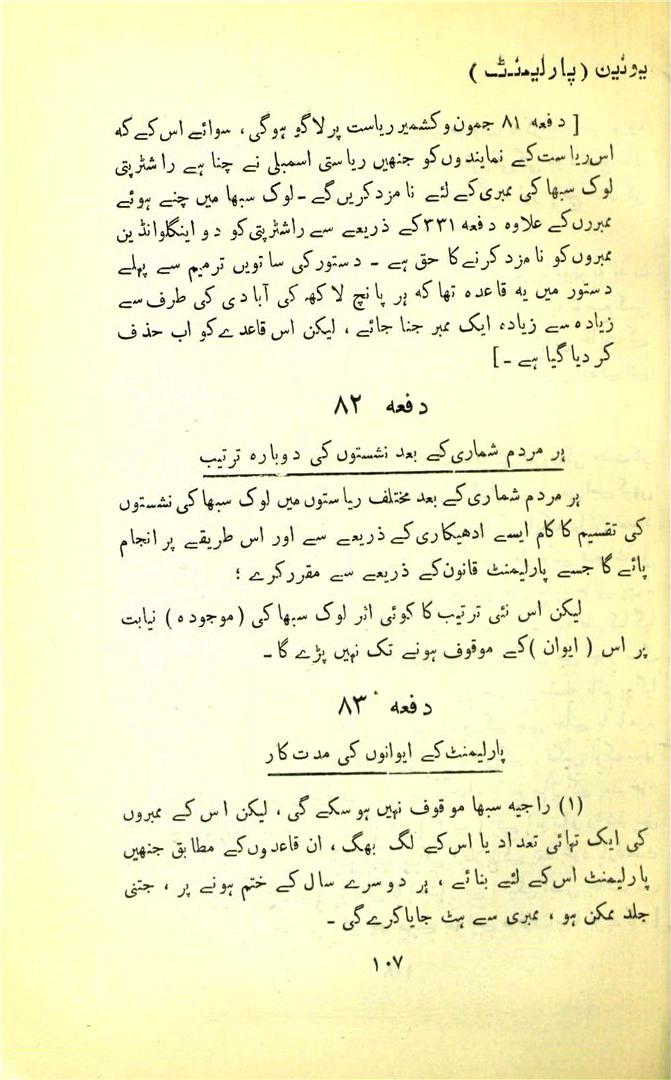 یونین (پارلیمنٹ)
[ دفعہ ۸۱ جموں و کشمیر ریاست پر لاگو ہوگی، سوائے اس کے کہ
اس ریاست کے نمایندوں کو جنھیں ریاستی اسمبلی نے چنا ہے راشٹرپتی
لوک سبھا کی ممبری کے لئے نامزد کریں گے ۔ لوک سبھا میں چنے ہوئے
ممبرں کے علاوہ دفعہ ۳۳۱ کے ذریعے سے راشٹرپتی کو دو اینگلوانڈین
ممبروں کو نامزد کرنے کا حق ہے ۔ دستور کی ساتویں ترمیم سے پہلے
دستور میں یہ قاعدہ تھا کہ ہر پانچ لاکھ کی آبادی کی طرف سے
زیادہ سے زیادہ ایک ممبر چنا جائے، لیکن اس قاعدے کو اب حذف
کر دیا گیا ہے ۔]
دفعہ ۸۲
ہر مردم شماری کے بعد نشستوں کی دوبارہ ترتیب
ہر مردم شماری کے بعد مختلف ریاستوں میں لوک سبھا کی نشستوں
کی تقسیم کا کام ایسے ادھیکاری کے ذریعے سے اور اس طریقے پر انجام
پائے گا جسے پارلیمنٹ قانون کے ذریعے سے مقرر کرے ؛
لیکن اس نئی ترتیب کا کوئی اثر لوک سبھا کی (موجودہ) نیابت
پر اس (ایوان) کے موقوف ہونے تک نہیں پڑے گا ۔
دفعہ ۸۳
پارلیمنٹ کے ایوانوں کی مدت کار
(۱) راجیہ سبھا موقوف نہیں ہو سکے گی، لیکن اس کے ممبروں
کی ایک تہائی تعداد یا اس کے لگ بھگ، ان قاعدوں کے مطابق جنھیں
پارلیمنٹ اس کے لئے بنائے، ہر دوسرے سال کے ختم ہونے پر، جتنی
جلد ممکن ہو، ممبری سے ہٹ جایا کرے گی ۔
۱۰۷